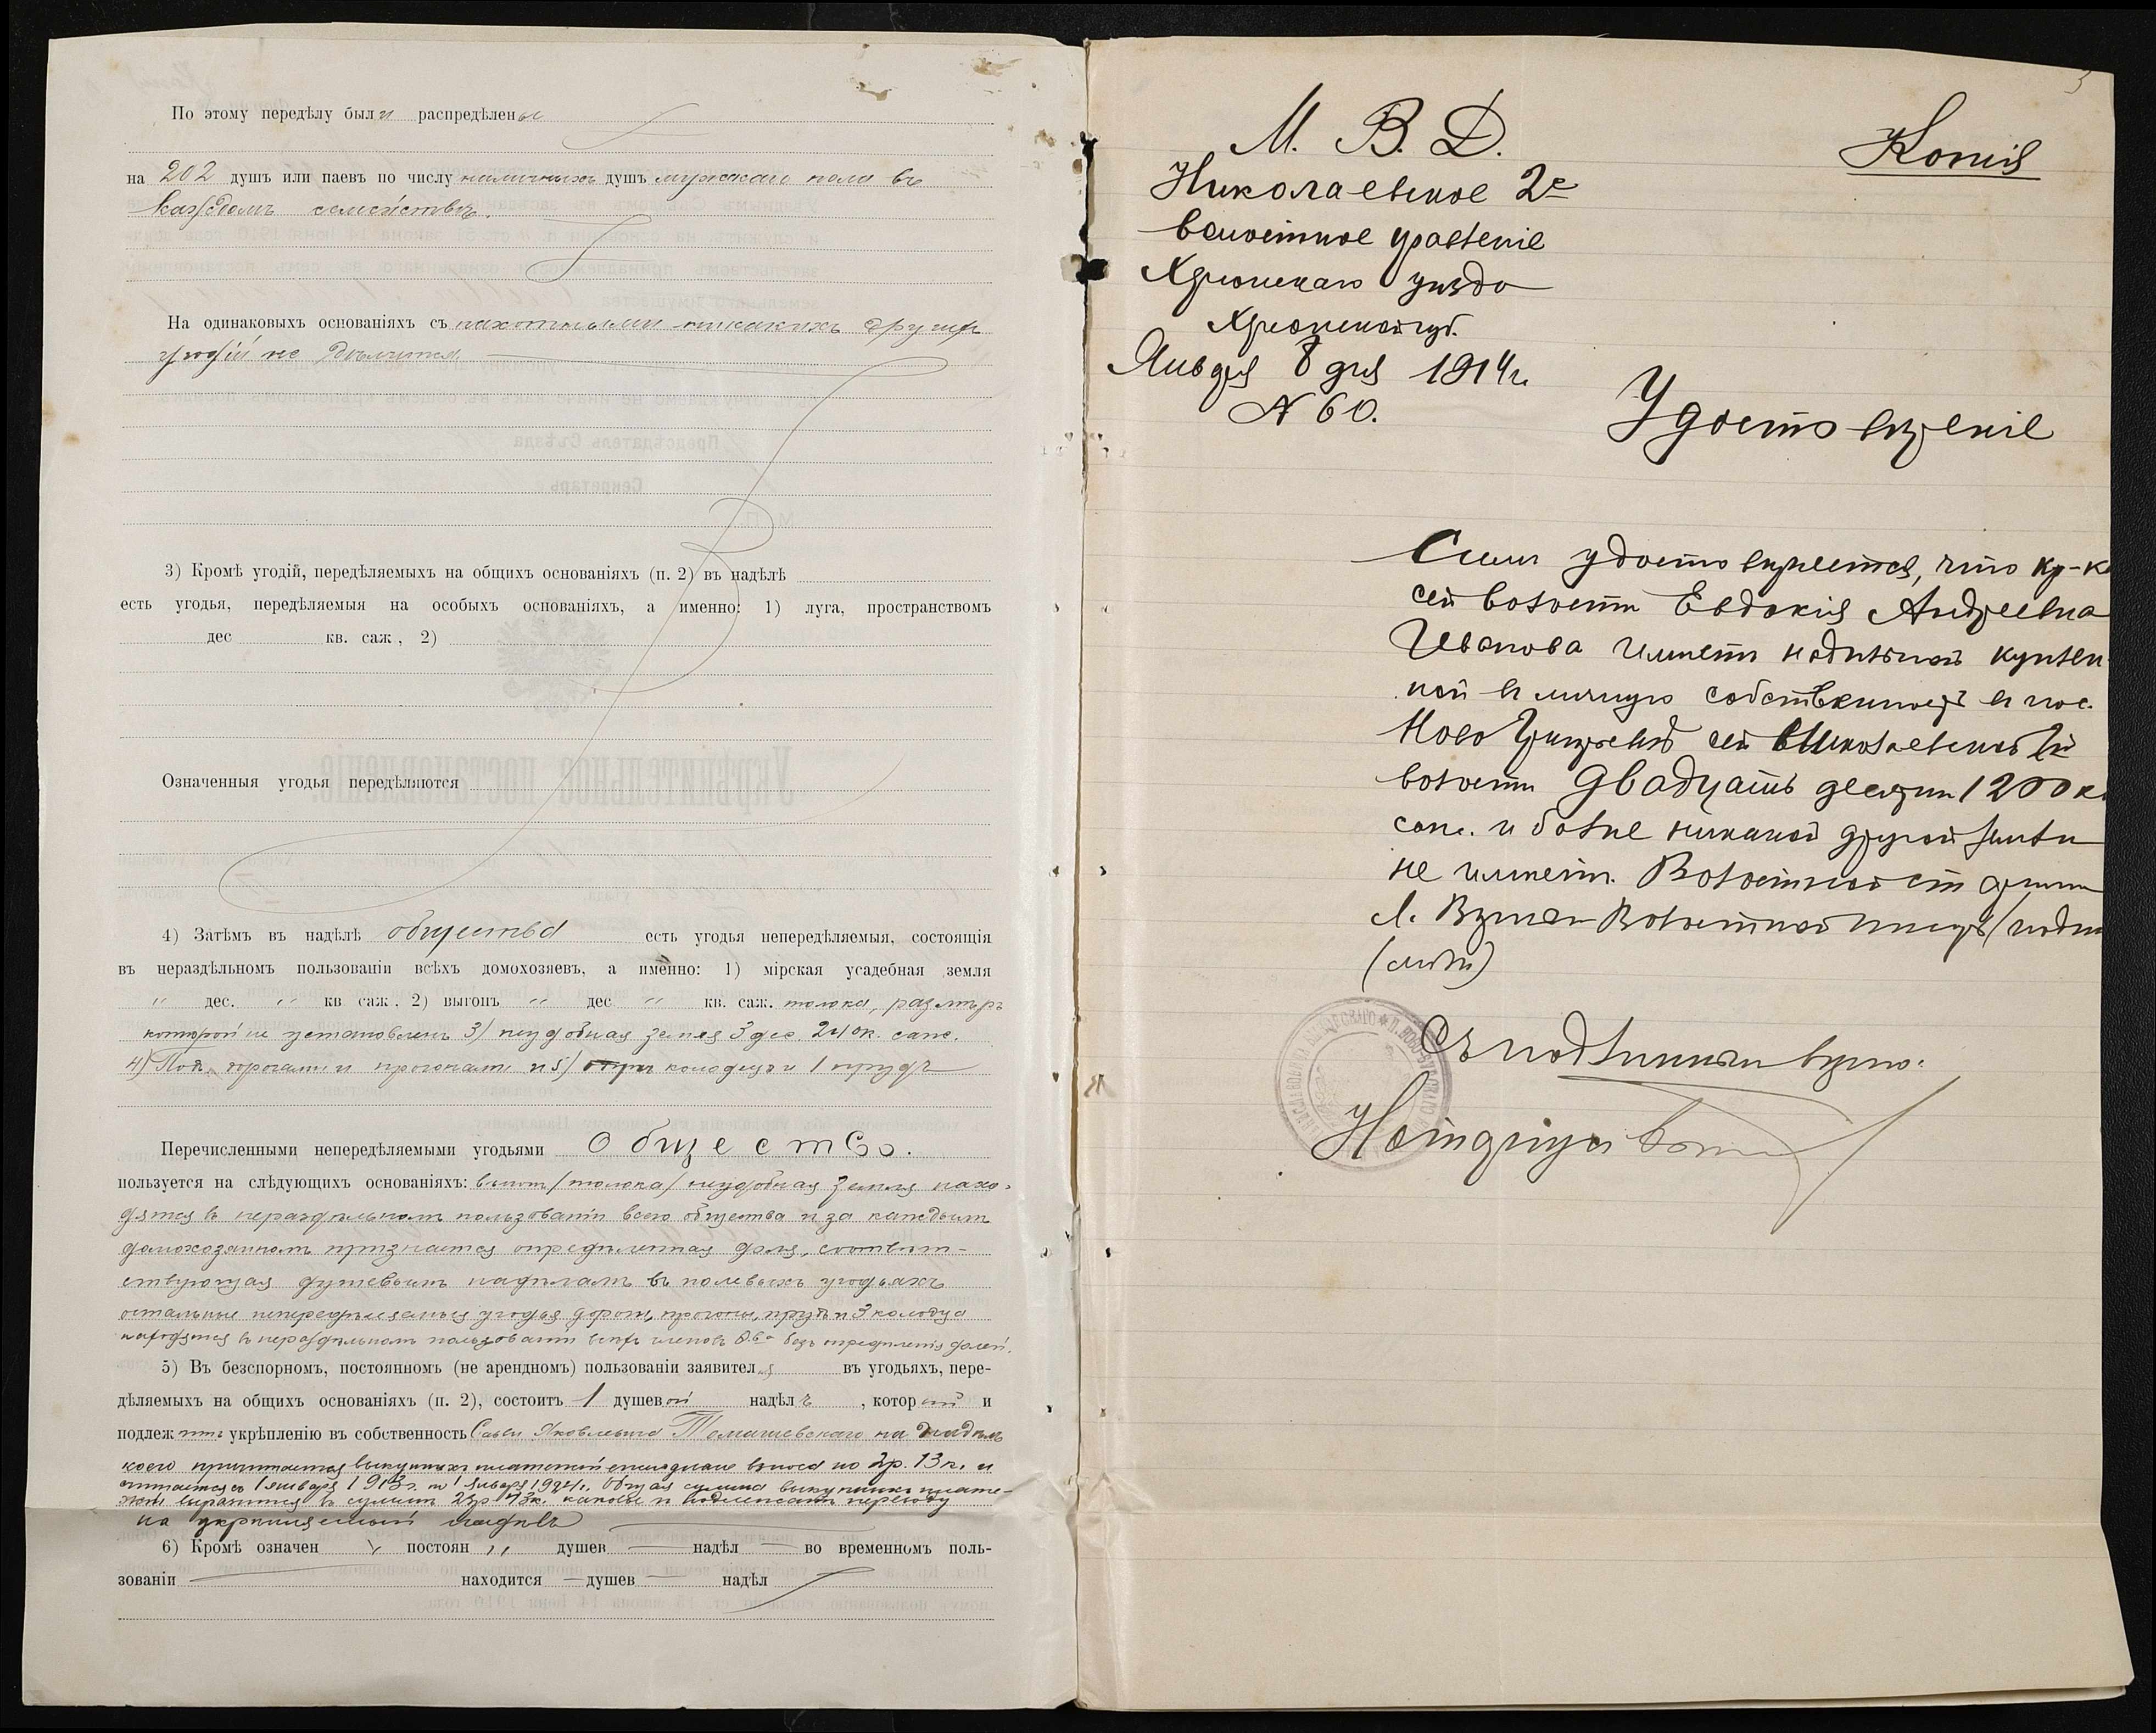 По этому передѣлу были распредѣлены
на 202 душъ или паевъ по числу наличныхъ душъ мужскаго пола въ
каждомъ семействѣ.
На одинаковыхъ основаніяхъ съ пахотными никакихъ другихъ
угодій не дѣлится
3) Кромѣ угодій, передѣляемыхъ на общихъ основаніяхъ (п. 2) въ надѣлѣ
есть угодья, передѣляемыя на особыхъ основаніяхъ, а именно: 1) луга, пространствомъ
дес кв. саж, 2)
Означенныя угодья передѣляются
4) Затѣмъ въ надѣлѣ общества есть угодья непередѣляемыя, состоящія
въ нераздѣльномъ пользованіи всѣхъ домохозяевъ, а именно: 1) мірская усадебная земля
" дес. " кв саж. 2) выгонъ " дес " кв. саж. толока, размѣръ
которой не установленъ 3) неудобная земля 3 дес. 240 к. саж.
4) Подъ дорогами и прогонами и 5) колодца и 1 прудъ
Перечисленными непередѣляемыми угодьями Общество.
пользуется на слѣдующихъ основаніяхъ: выгонъ /толока/ неудобная земля нахо-
дятся въ нераздѣльномъ пользованіи всего общества и за каждымъ
домохозяиномъ признается опредѣленная доля, соотвѣт-
ствующая душевымъ надѣламъ въ полевыхъ угодьяхъ
остальные непередѣляемыя угодья дороги, прогоны, прудъ и 3 колодца
находятся въ нераздѣльномъ пользованіи всѣхъ членовъ О-ва безъ опредѣленія долей.
5) Въ безспорномъ, постоянномъ (не арендномъ) пользованіи заявителя въ угодьяхъ, пере-
дѣляемыхъ на общихъ основаніяхъ (п. 2), состоитъ 1 душевой надѣлъ, который и
подлежитъ укрѣпленію въ собственность Саввы Яковлевича Томашевскаго на надѣлъ
коего причитается выкупныхъ платежей ежегодные взноса по 2 р. 13 к. и
считается съ 1 января 1913 г. по 1 января 1924 г. Общая сумма выкупныхъ плате-
жей выразится въ суммѣ 23 р. 43 к. каковые и подлежатъ переводу
на укрѣпляемый надѣлъ
6) Кромѣ означен постоян " душев надѣл во временномъ поль-
зованіи находится душев надѣл
М. В. Д.
Николаевское 2е
волостное правленіе
Херсонскаго уѣзда
Херсонской губ.
Января 8 дня 1914 г.
N 60.
Копія
Удостовѣреніе
Симъ удостовѣряется, что кр-ка
сей волости Евдокія Андреевна
Иванова имѣетъ надѣльной куплен
ной въ личную собственность въ пос.
Ново Григорьевкѣ сей Николаевской 2й
волости двадцать десятин 1200 к.
саж. и болѣе никакой другой земли
не имѣетъ. Волостной старшина
Волостной писарь (подп
Съ подлиннымъ вѣрно: